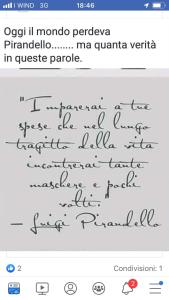 I WIND 3G 18:46
Oggi il mondo perdeva
Pirandello........ ma quanta verità
in queste parole.
"Imparerai a tue
spese che nel lungo
tragitto della vita
incontrerai tante
maschere e pochi
volti."
– Luigi Pirandello
2 Condivisioni: 1
2